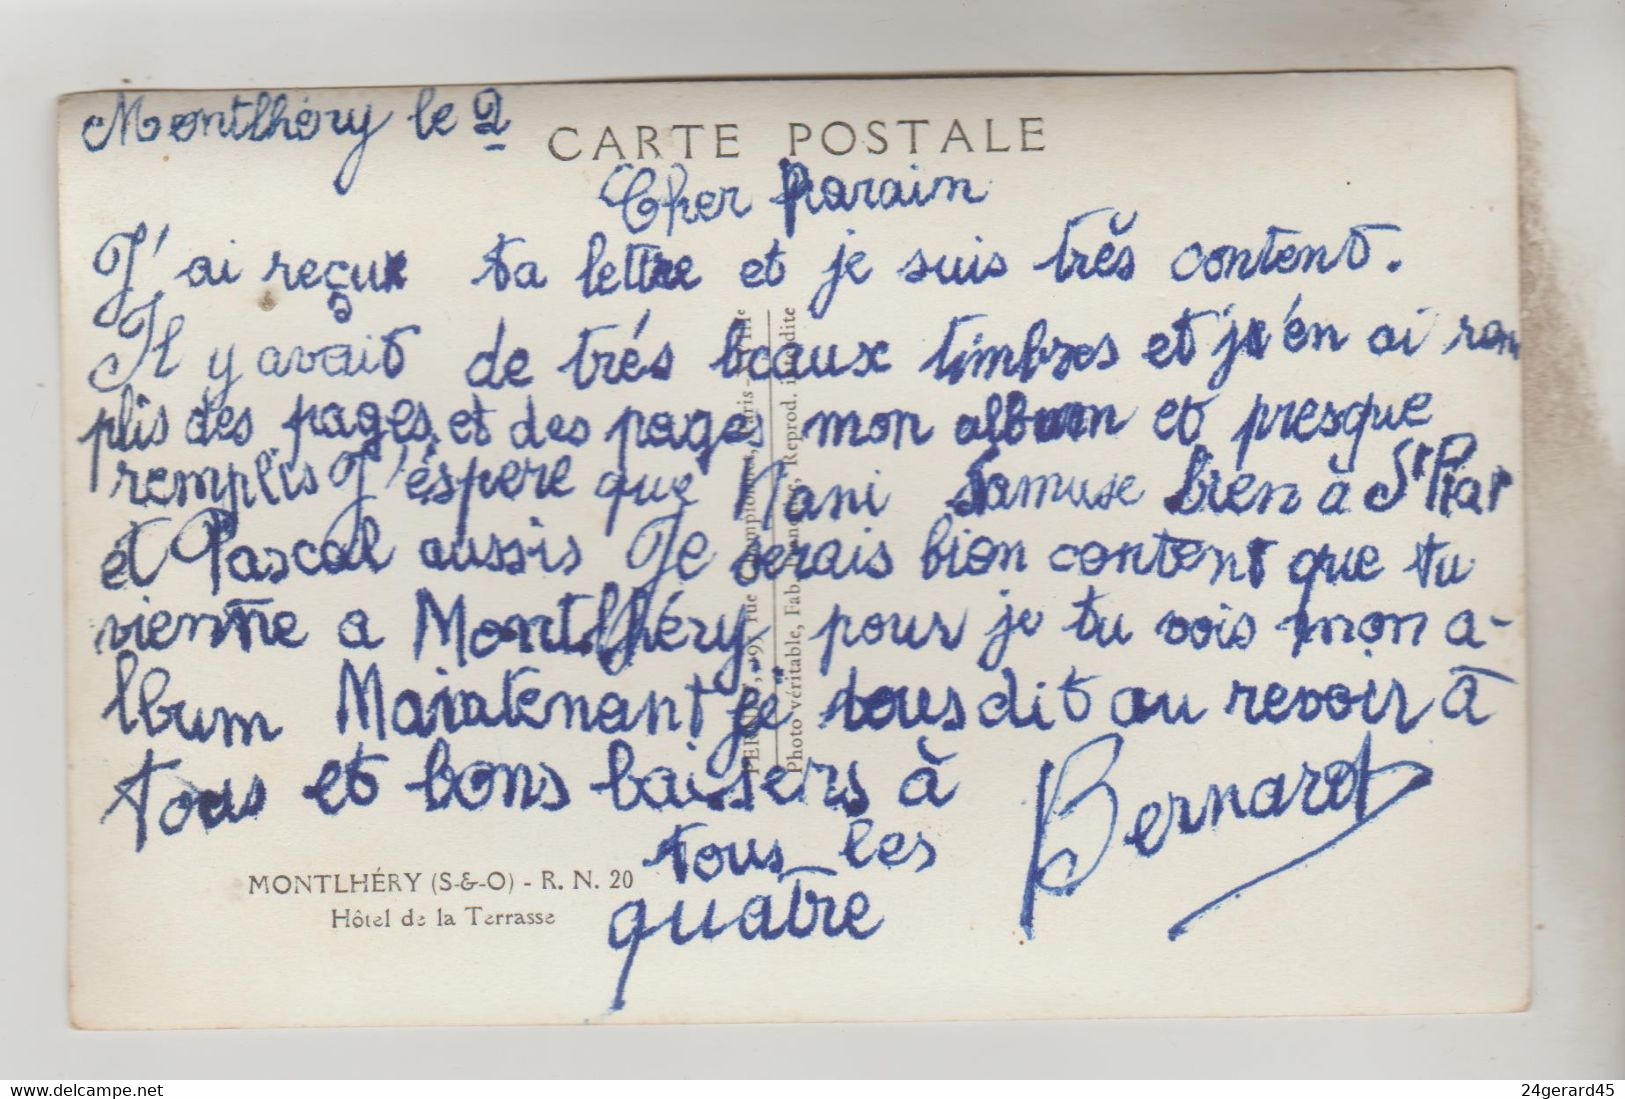 Montlhéry le 2
CARTE POSTALE
Cher parain
J'ai reçu ta lettre et je suis très content.
Il y avait de trés beaux timbres et j'en ai ram
plis des pages et des pages mon album et presque
remplis J'éspere que Nani s'amuse bien à St Piat
et Pascal aussis Je serais bien content que tu
vienne a Montlhéry pour je tu vois mon a-
lbum Maintenant je vous dit au revoir à
tous et bons baisers à
tous les
quatre
Bernard
MONTLHÉRY (S-&-O) - R. N. 20
Hôtel de la Terrasse
rue Championnet, Paris - XVIIIe
Photo véritable, Fab. Française, Reprod. interdite
www.delcampe.net
24gerard45